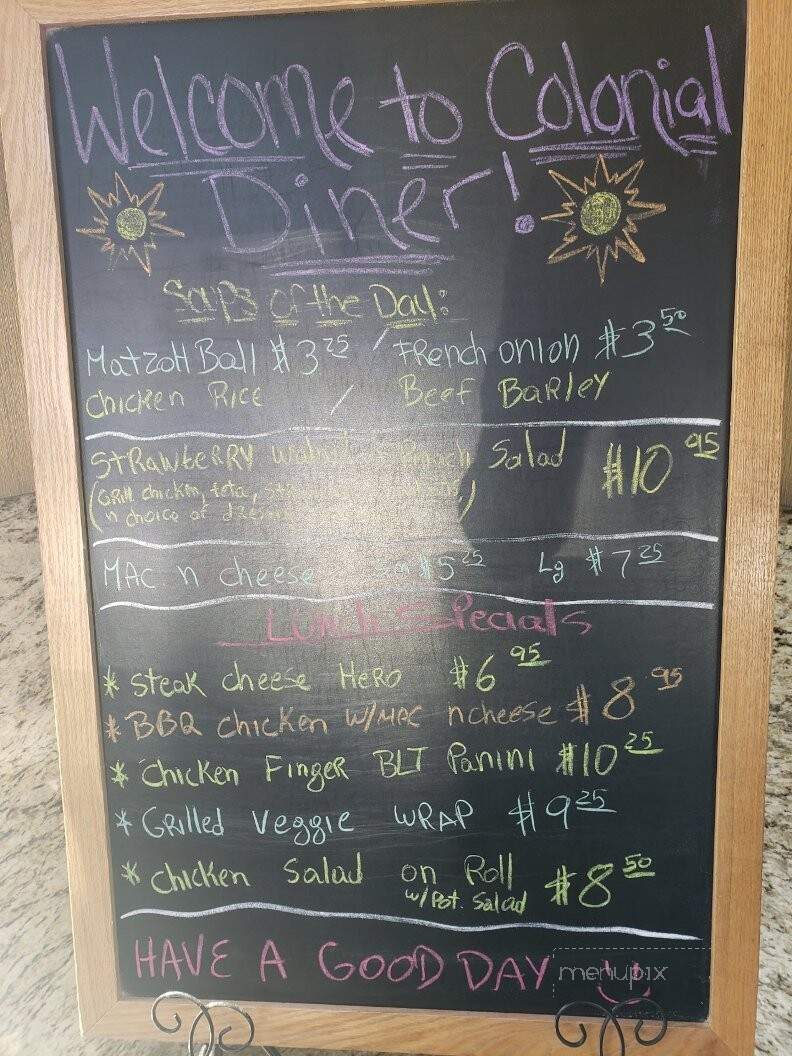 Welcome to Colonial
Diner!
Soups of the Day:
Matzoh Ball $3.25 / French onion $3.50
Chicken Rice / Beef Barley
Strawberry Salad $10.95
(Grill chicken, feta,
n choice of
Mac n cheese $5.25 Lg $7.25
Lunch Specials
* Steak cheese Hero $6.95
* BBQ chicken w/mac n cheese $8.95
* Chicken Finger BLT Panini $10.25
* Grilled Veggie Wrap $9.25
* Chicken Salad on Roll $8.50
w/Pot. Salad
HAVE A GOOD DAY
menupix